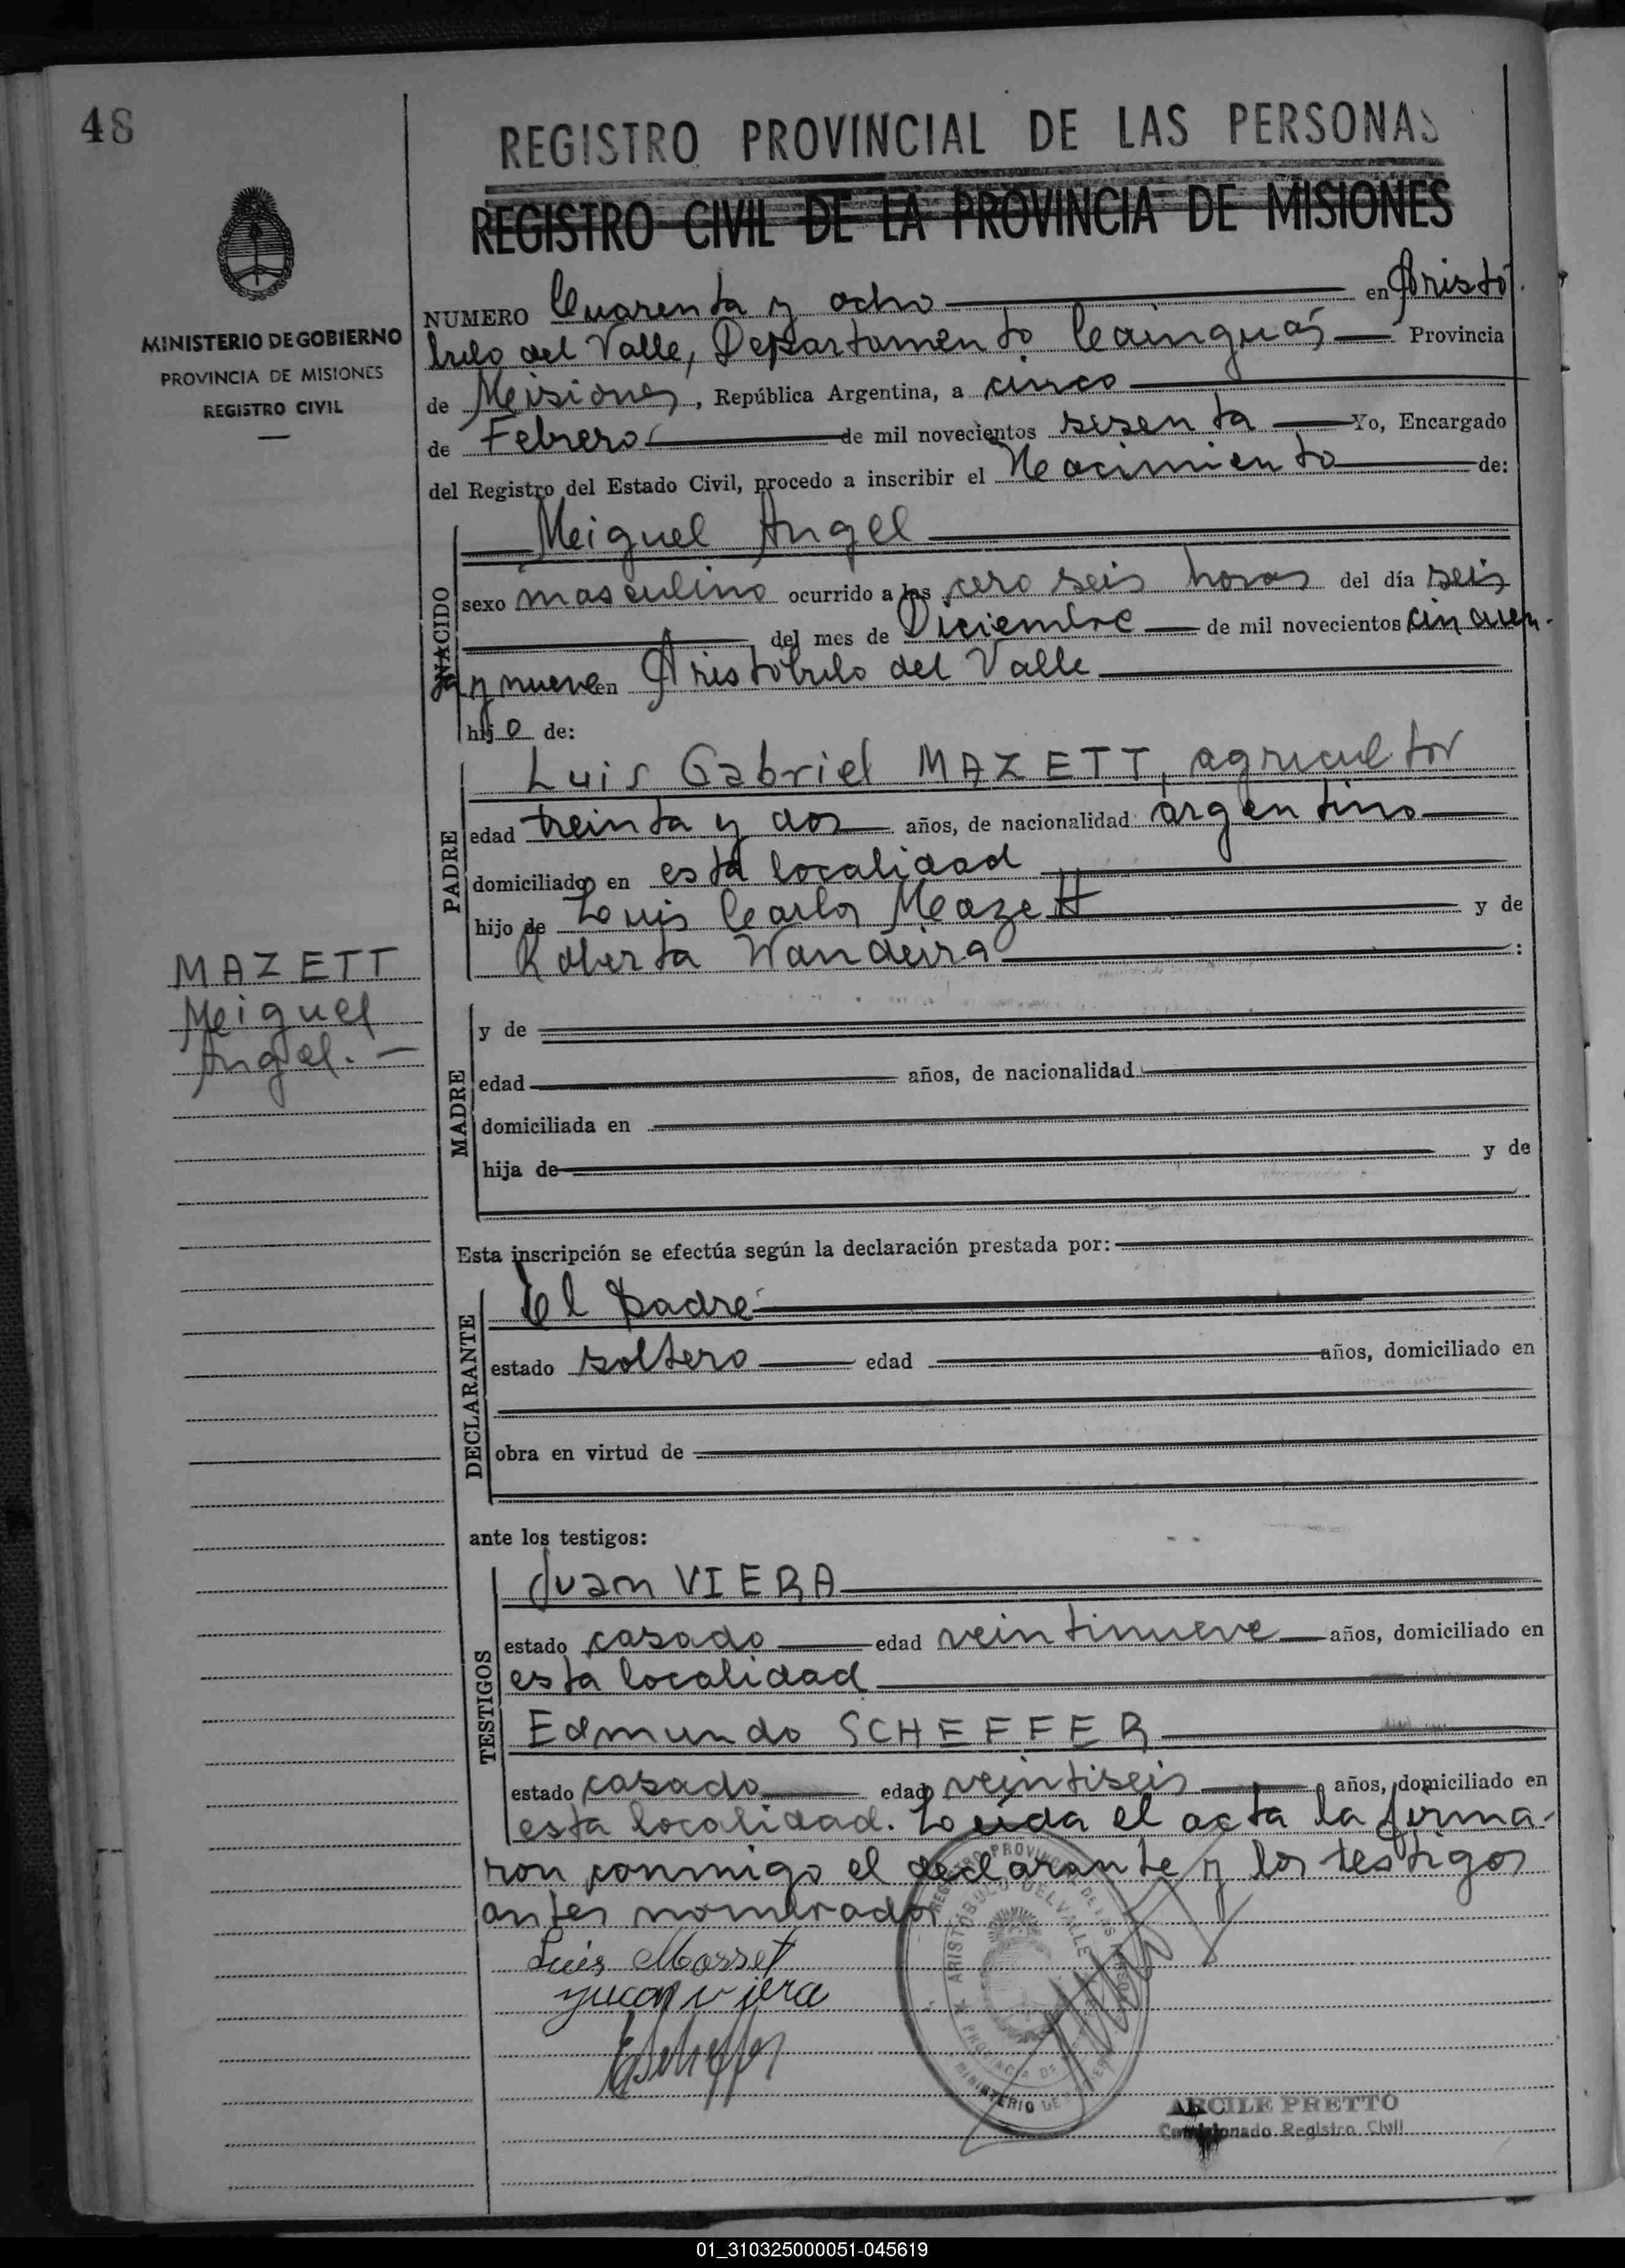 48
REGISTRO PROVINCIAL DE LAS PERSONAS
REGISTRO CIVIL DE LA PROVINCIA DE MISIONES
MINISTERIO DE GOBIERNO
PROVINCIA DE MISIONES
REGISTRO CIVIL
NUMERO Cuarenta y ocho en Aristó
bulo del Valle, Departamento Cainguás Provincia
de Misiones, República Argentina, a cinco
de Febrero de mil novecientos sesenta Yo, Encargado
del Registro del Estado Civil, procedo a inscribir el Nacimiento de:
NACIDO
Miguel Angel
sexo masculino ocurrido a las cero seis horas del día seis
del mes de Diciembre de mil novecientos cincuen-
ta y nueve en Aristóbulo del Valle
hijo de:
PADRE
Luis Gabriel MAZETT, agricultor
edad treinta y dos años, de nacionalidad argentino
domiciliado en esta localidad
hijo de Luis Carlos Mazett y de
Roberta Wandeira :
MAZETT
Miguel
Angel.-
MADRE
y de
edad años, de nacionalidad
domiciliada en
hija de y de
Esta inscripción se efectúa según la declaración prestada por:
DECLARANTE
El padre
estado soltero edad años, domiciliado en
obra en virtud de
ante los testigos:
TESTIGOS
Juan VIERA
estado casado edad veintinueve años, domiciliado en
esta localidad
Edmundo SCHEFFER
estado casado edad veintiseis años, domiciliado en
esta localidad. Leída el acta la firma-
ron conmigo el declarante y los testigos
antes nombrados
Luis Masset
Juan viera
EScheffer
REGISTRO PROVINCIAL DE LAS PERSONAS
ARISTÓBULO DEL VALLE
PROVINCIA DE
MINISTERIO DE
ARCILE PRETTO
Comisionado Registro Civil
01_310325000051-045619